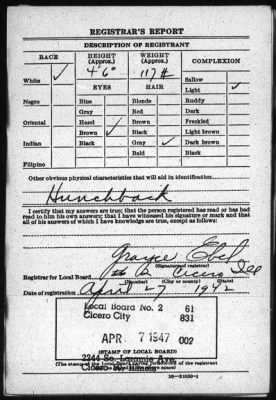 REGISTRAR'S REPORT
DESCRIPTION OF REGISTRANT
RACE HEIGHT (Approx.) WEIGHT (Approx.) COMPLEXION
White ✓ 4' 6" 117 # Sallow
Light ✓
EYES HAIR
Negro Blue Blonde Ruddy
Gray Red Dark
Oriental Hazel Brown Freckled
Brown ✓ Black Light brown
Indian Black Gray ✓ Dark brown
Bald Black
Filipino
Other obvious physical characteristics that will aid in identification
Hunchback
I certify that my answers are true; that the person registered has read or has had
read to him his own answers; that I have witnessed his signature or mark and that
all of his answers of which I have knowledge are true, except as follows:
Grayce Ebel
(Signature of registrar)
Registrar for Local Board 2 Cicero Ill
(Number) (City or county)
Date of registration April 27 1942
Local Board No. 2 61
Cicero City 831
APR 7 1947 002
(STAMP OF LOCAL BOARD)
2244 So. Laramie Ave.
(The stamp of the Local Board of the registrant)
Cicero 50, Illinois